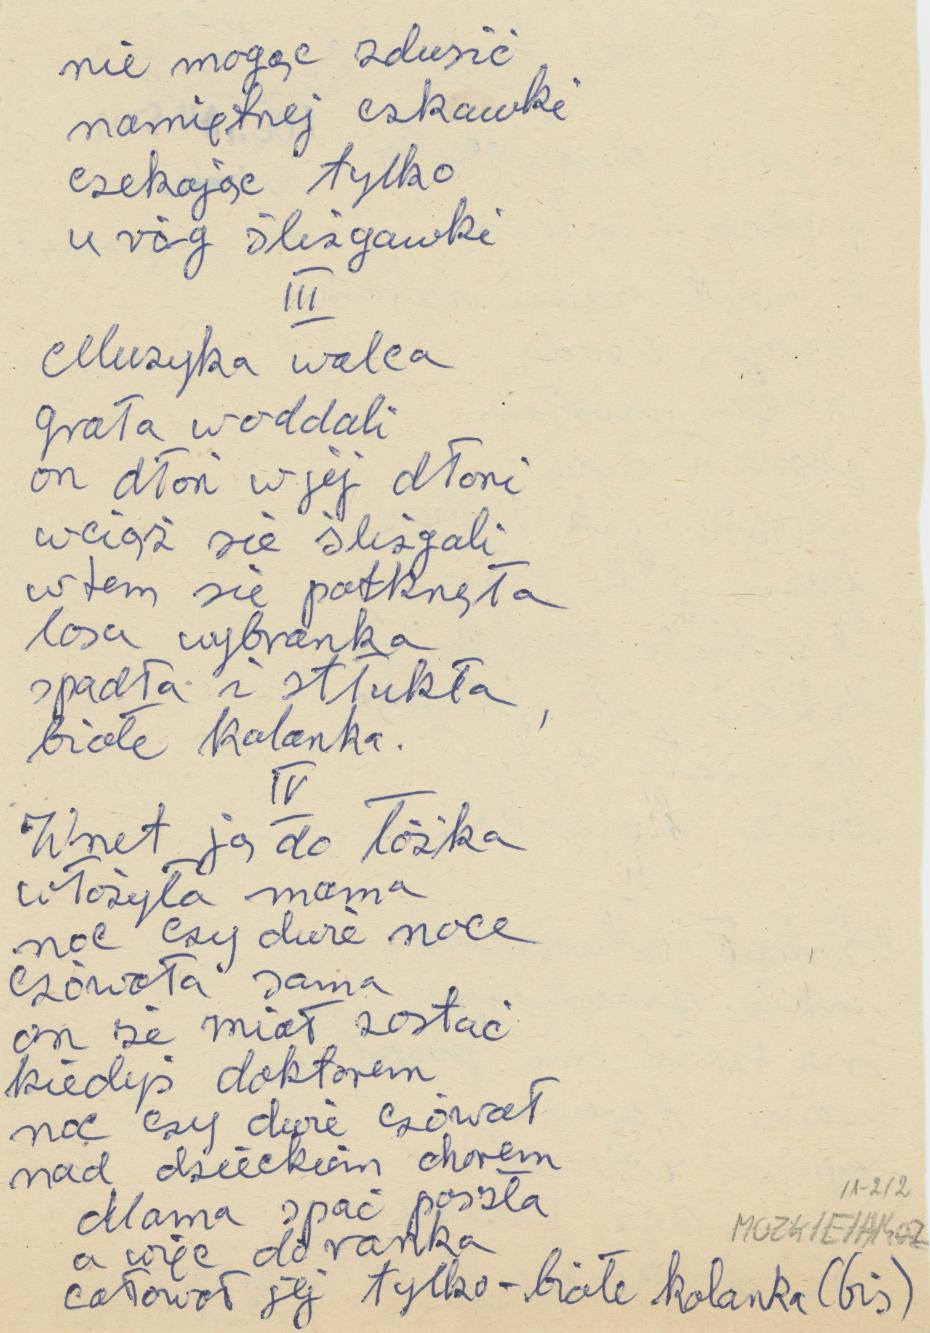 nie mogąc zdusić
namiętnej czkawki
czekając tylko
u róg śliżgawki
III
Muzyka walca
grała woddali
on dłoń w jej dłoni
wciąż sie śliżgali
wtem sie potknęła
losu wybranka
spadła i stłukła,
białe kolanka.
IV
Wnet ją do łóżka
włożyła mama
noc czy dwie noce
czówała sama
on że miał zostać
kiedyś doktorem
noc czy dwie czówał
nad dzieckiem chorem
Mama spać poszła
a więc do ranka
całował jej tylko - białe kolanka (bis)
11-2/2
MOZK/E/